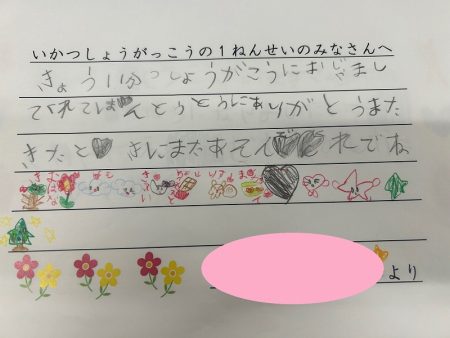 いかつしょうがっこうの1ねんせいのみなさんへ
きょういかつしょうがこうにおじゃまし
てくれてほんとうとうにありがとうまた
きたときにまたあそんでくれでね
より